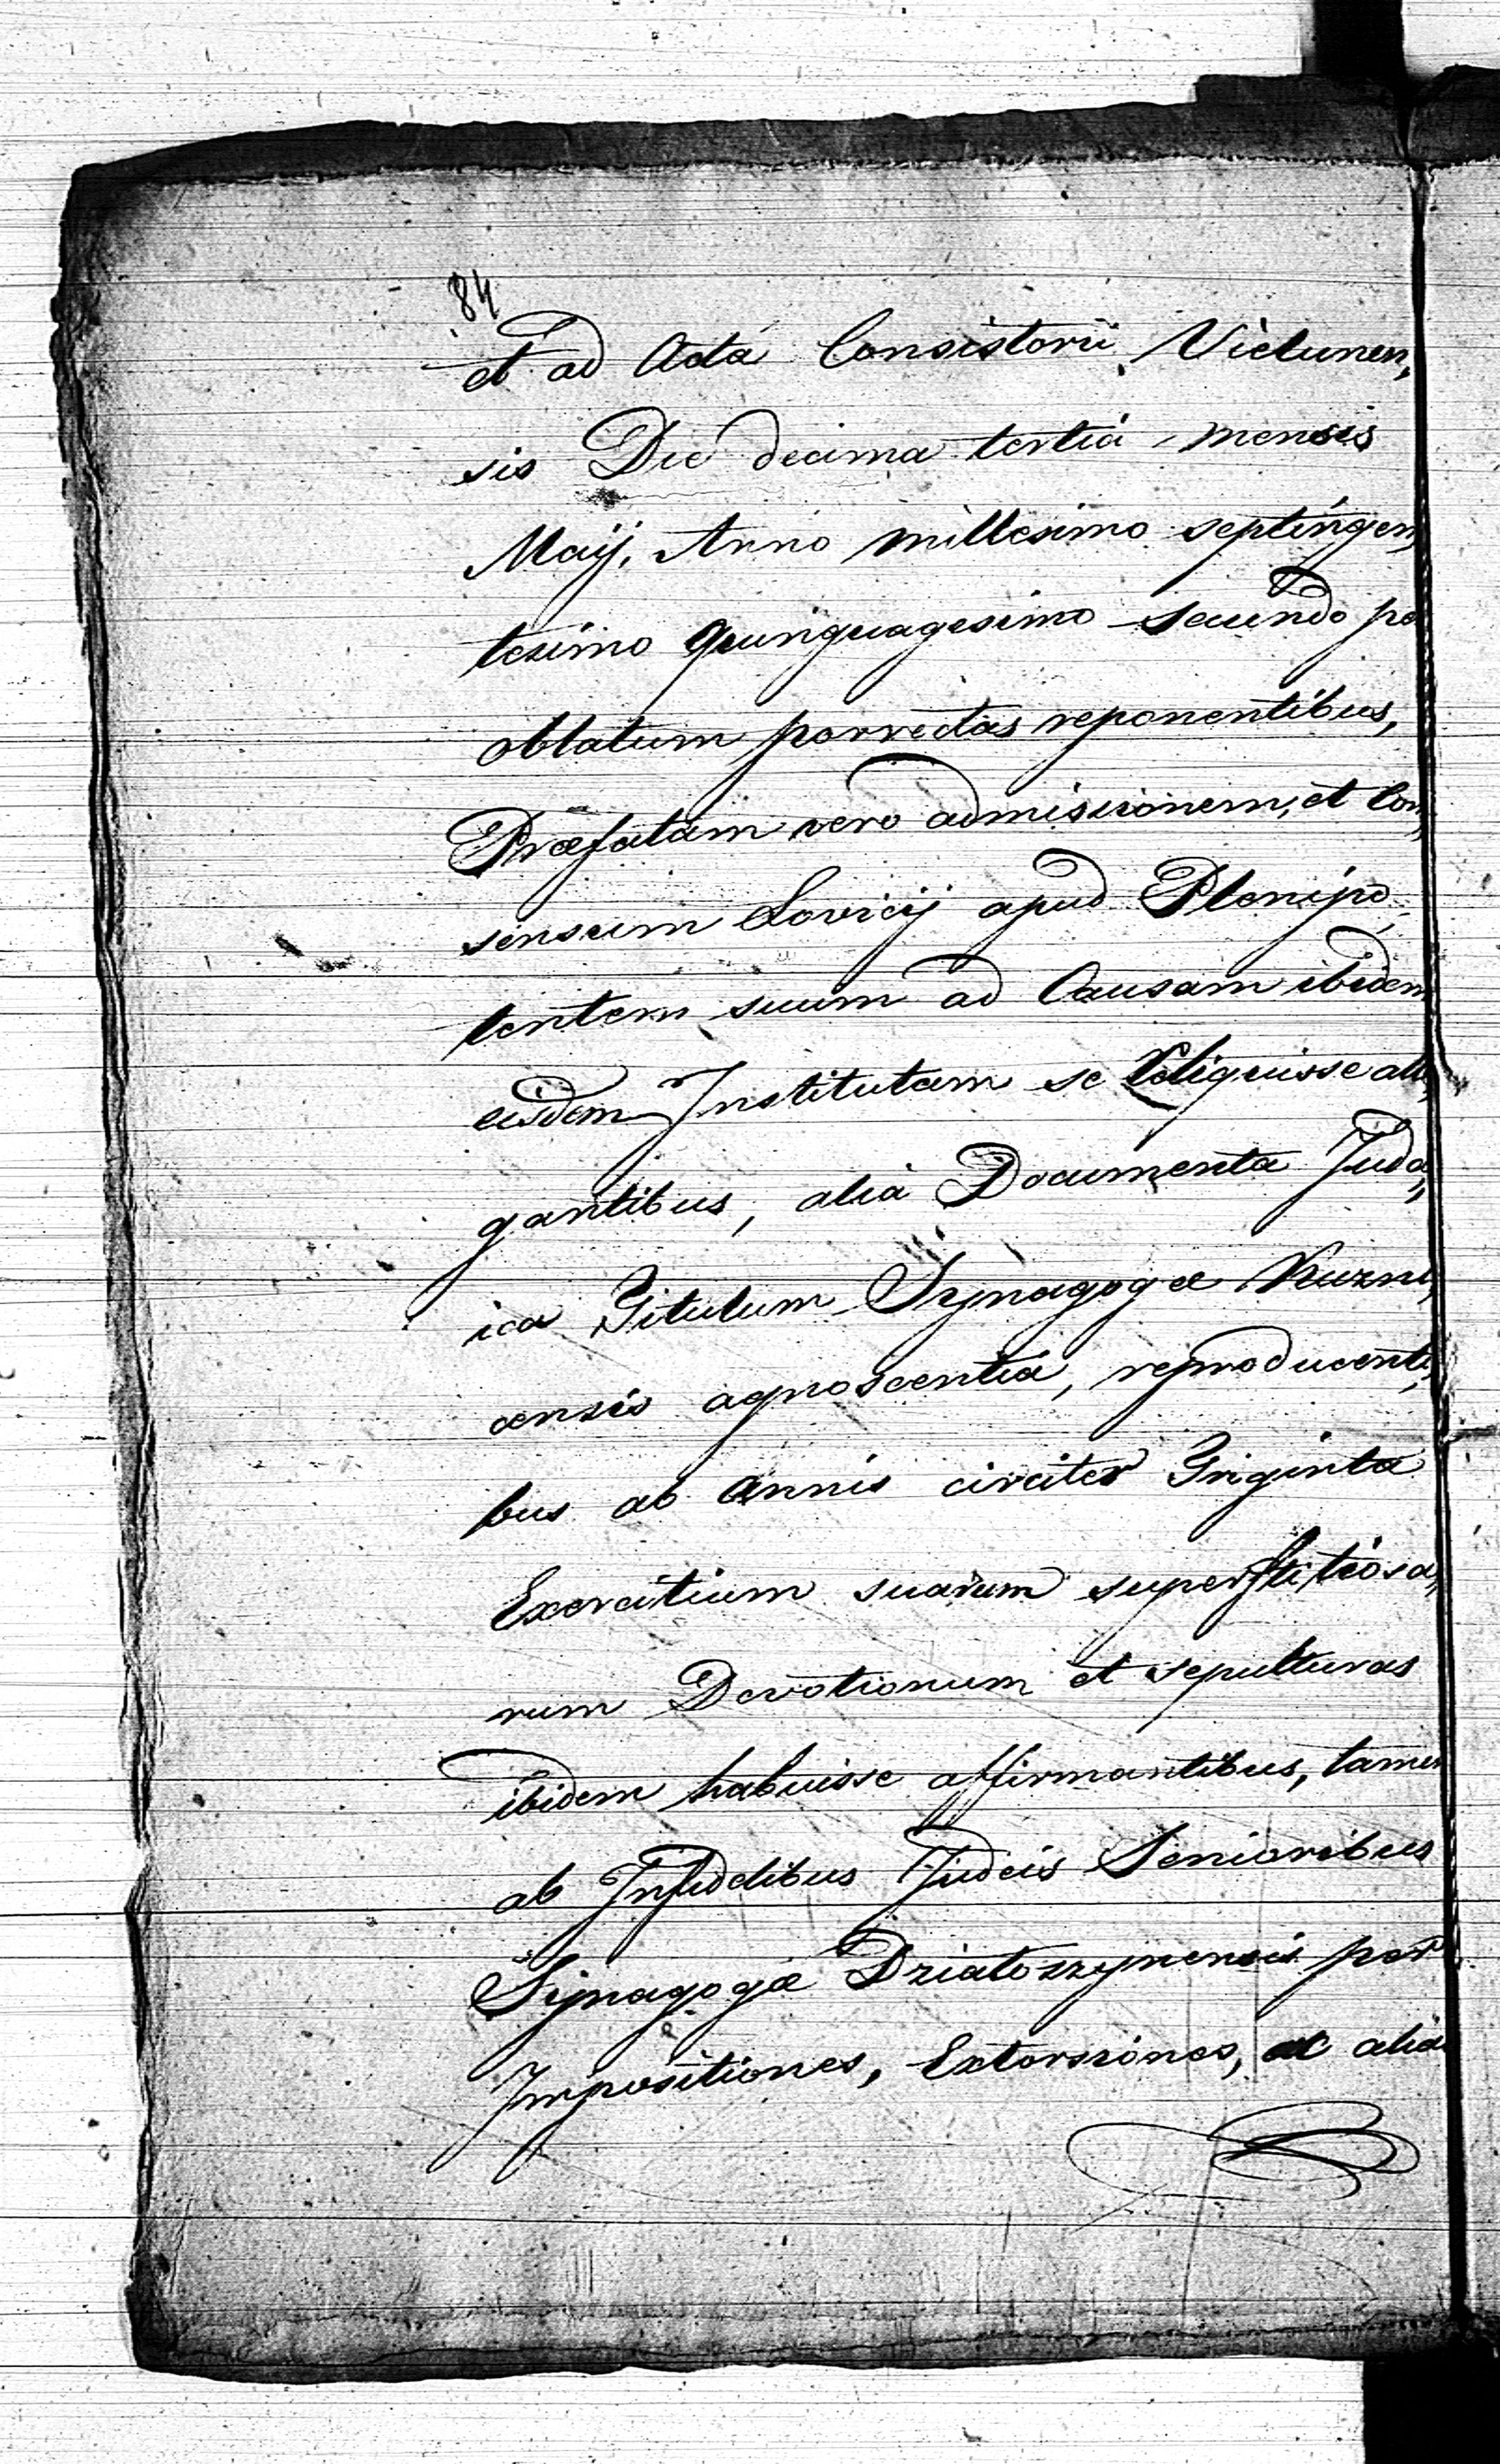 84
et ad Acta Consistorii Vielunen,
sis Die decima tertia mensis
Maij, Anno millesimo septingen,
tesimo quinquagesimo secundo per
oblatum porrectas reponentibus,
Præfatam vero admissionem, et Con,
sensum Lovicij apud Plenipo,
tentem suum ad Causam ibidem
eisdem Institutam se reliquisse alle,
gantibus, alia Documenta Juda,
ica Titulum Synagogæ Kuzni,
censis agnoscentia, reproducenti,
bus ab Annis circiter Triginta
Exercitium suarum superstitiosa,
rum Devotionum et sepulturas
ibidem habuisse affirmantibus, tamen
ab Infidelibus Judeis Senioribus
Synagogæ Dziatoszynensis per
Impositiones, Extorsiones, ac alia